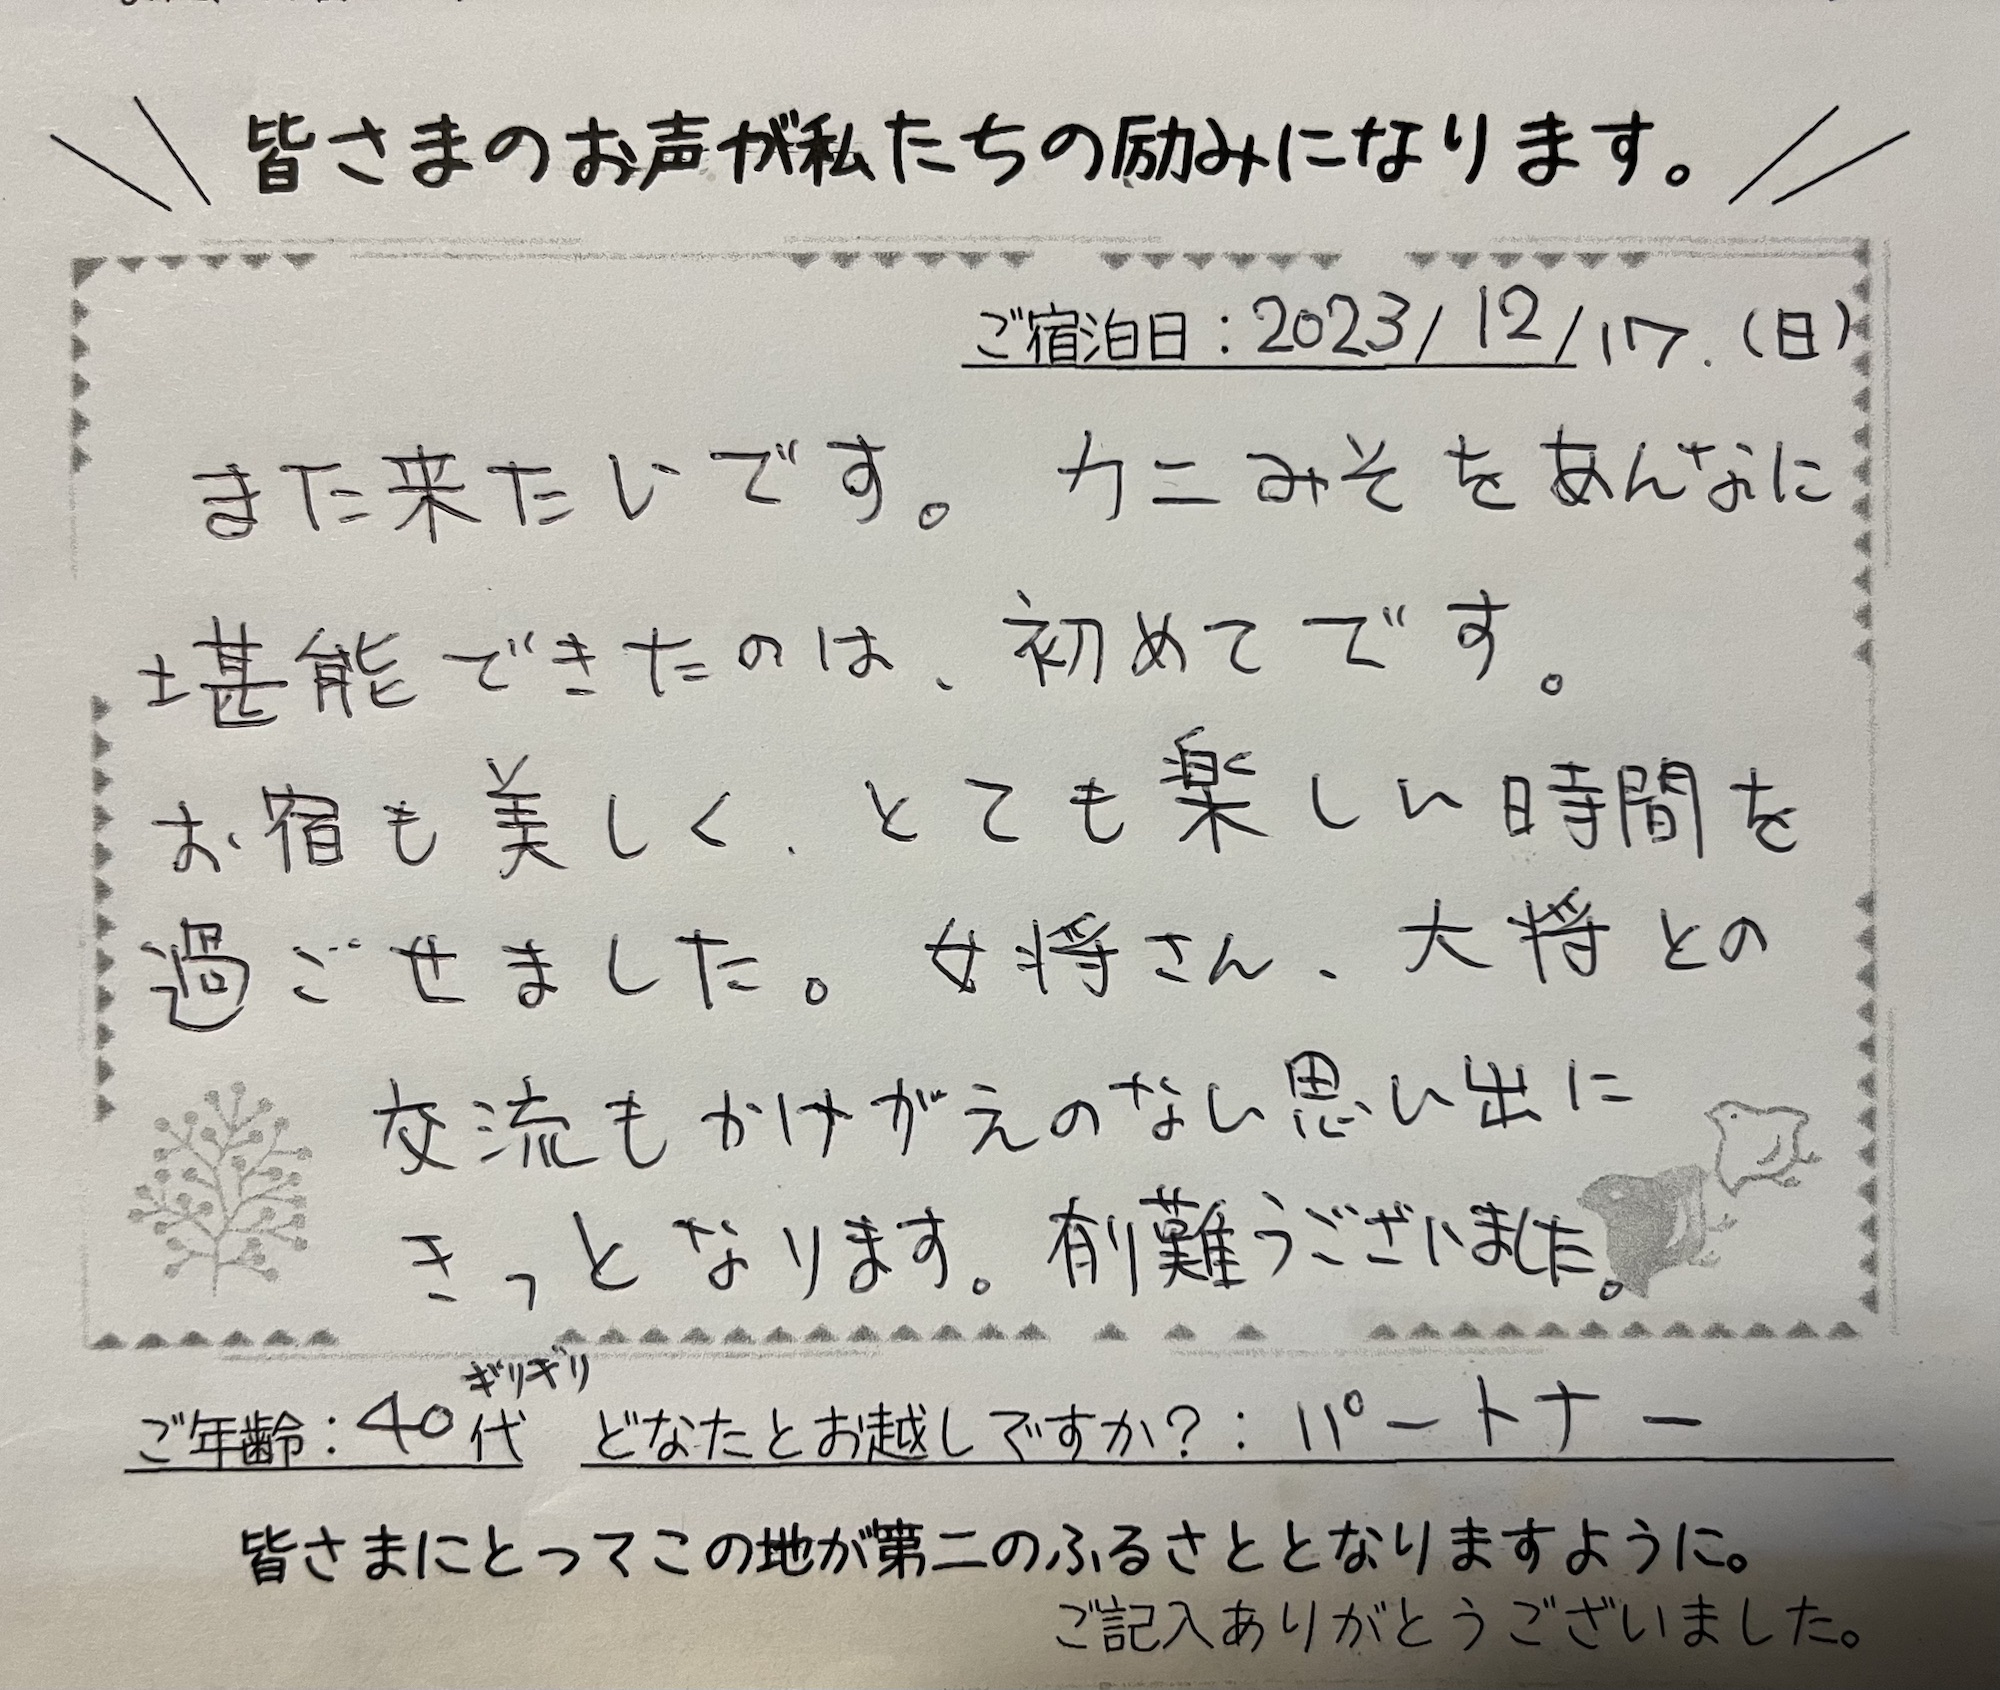 皆さまのお声が私たちの励みになります。
ご宿泊日：2023/12/17.（日）
また来たいです。カニみそをあんなに
堪能できたのは、初めてです。
お宿も美しく、とても楽しい時間を
過ごせました。女将さん、大将との
交流もかけがえのない思い出に
きっとなります。有り難うございました。
ギリギリ
ご年齢：40代 どなたとお越しですか？：パートナー
皆さまにとってこの地が第二のふるさととなりますように。
ご記入ありがとうございました。